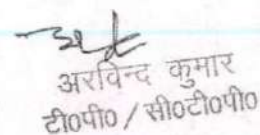 अरविन्द कुमार
टी०पी० / सी०टी०पी०